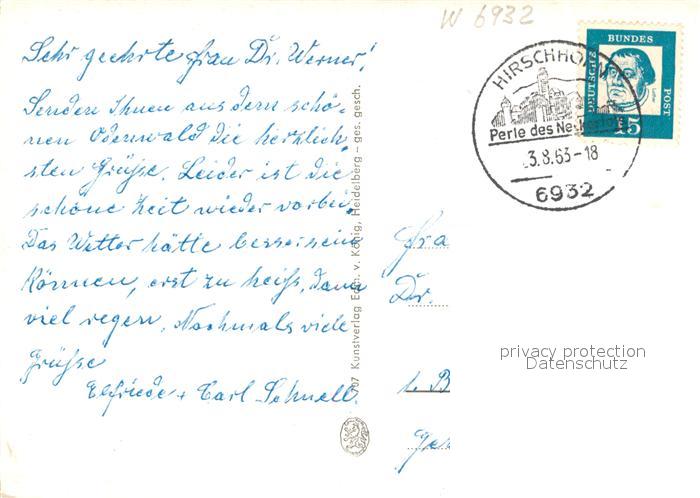 W 6932
Sehr geehrte Frau Dr. Werner!
Senden Ihnen aus dem schö-
nen Odenwald die herzlich-
sten Grüße. Leider ist die
schöne Zeit wieder vorbei.
Das Wetter hätte besser sein
können, erst zu heiß, dann
viel regen. Nochmals viele
Grüße
Elfriede + Carl Schnell.
Kunstverlag Edm. v. König, Heidelberg – ges. gesch.
HIRSCHHORN
Perle des Neckartals
3.8.63-18
6932
DEUTSCHE
BUNDES
POST
15
Fra
Dr.
privacy protection
Datenschutz